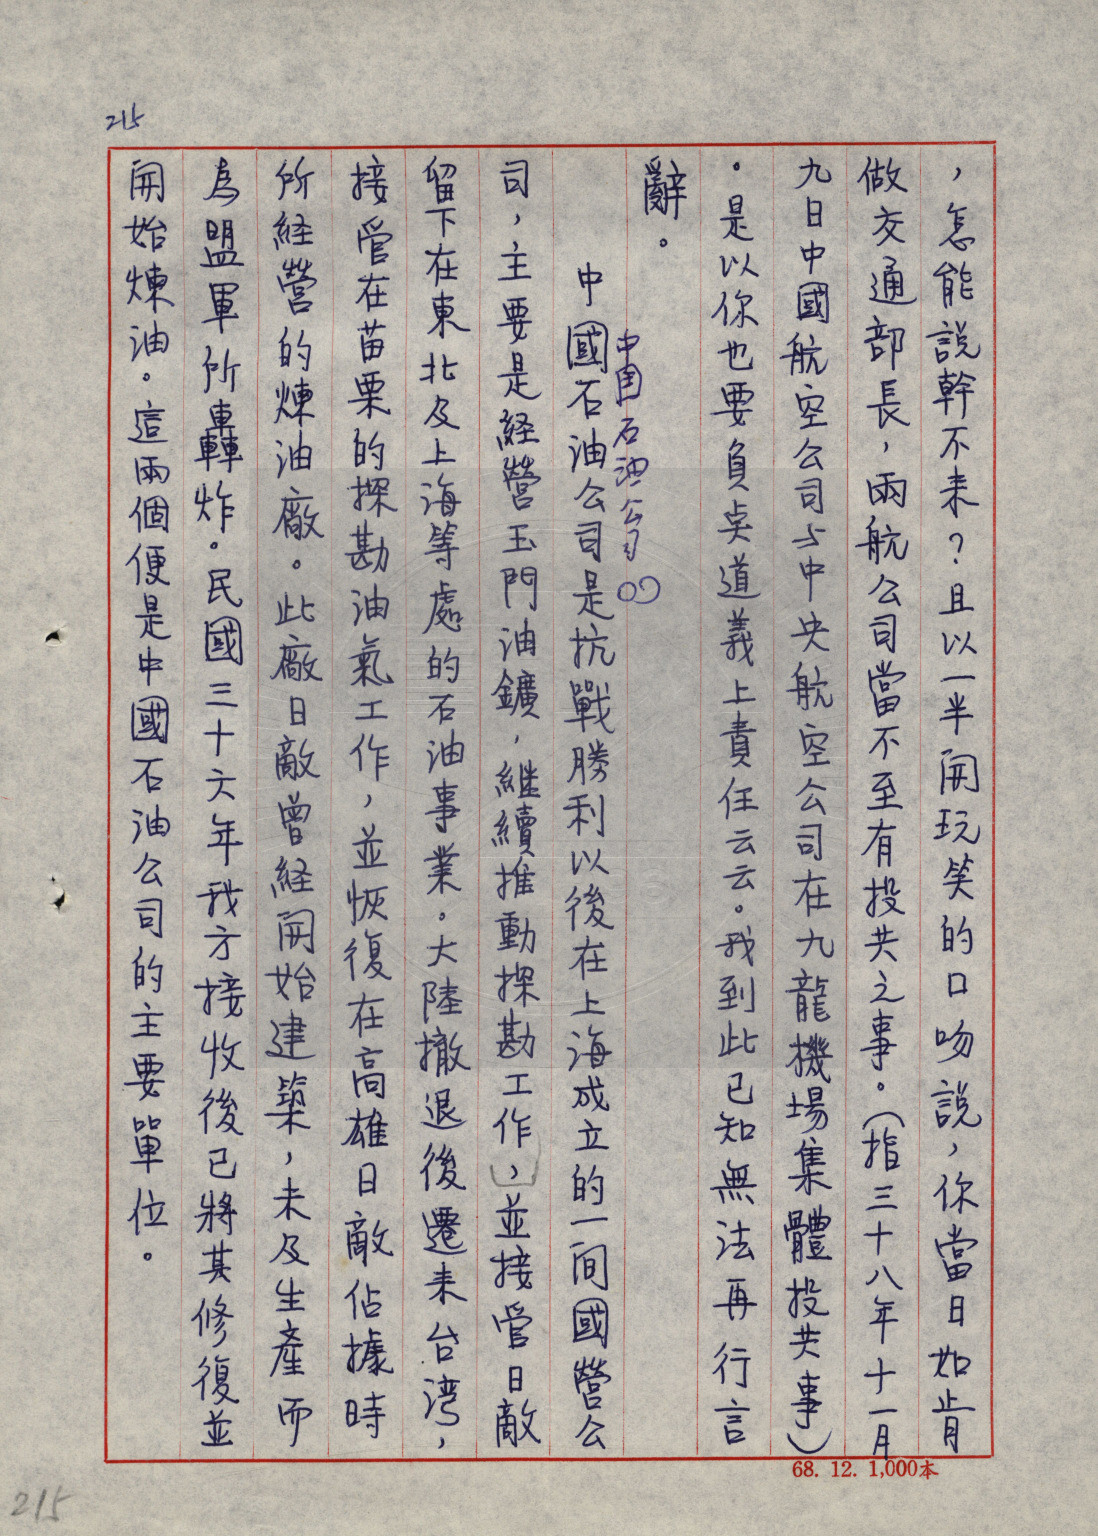 215
，怎能說幹不来？且以一半開玩笑的口吻說，你當日如肯
做交通部長，兩航公司當不至有投共之事。（指三十八年十一月
九日中國航空公司与中央航空公司在九龍機場集體投共事）
。是以你也要負点道義上責任云云。我到此已知無法再行言
辭。
中国石油公司
中國石油公司是抗戰勝利以後在上海成立的一间國營公
司，主要是経營玉門油鑛，继續推動探勘工作，並接管日敵
留下在東北及上海等處的石油事業。大陸撤退後遷来台湾，
接管在苗栗的探勘油氣工作，並恢復在高雄日敵佔據時
所経營的煉油廠。此廠日敵曾経開始建築，未及生產而
為盟軍所轟炸。民國三十六年我方接收後已將其修復並
開始煉油。這兩個便是中國石油公司的主要單位。
68. 12. 1,000本
215